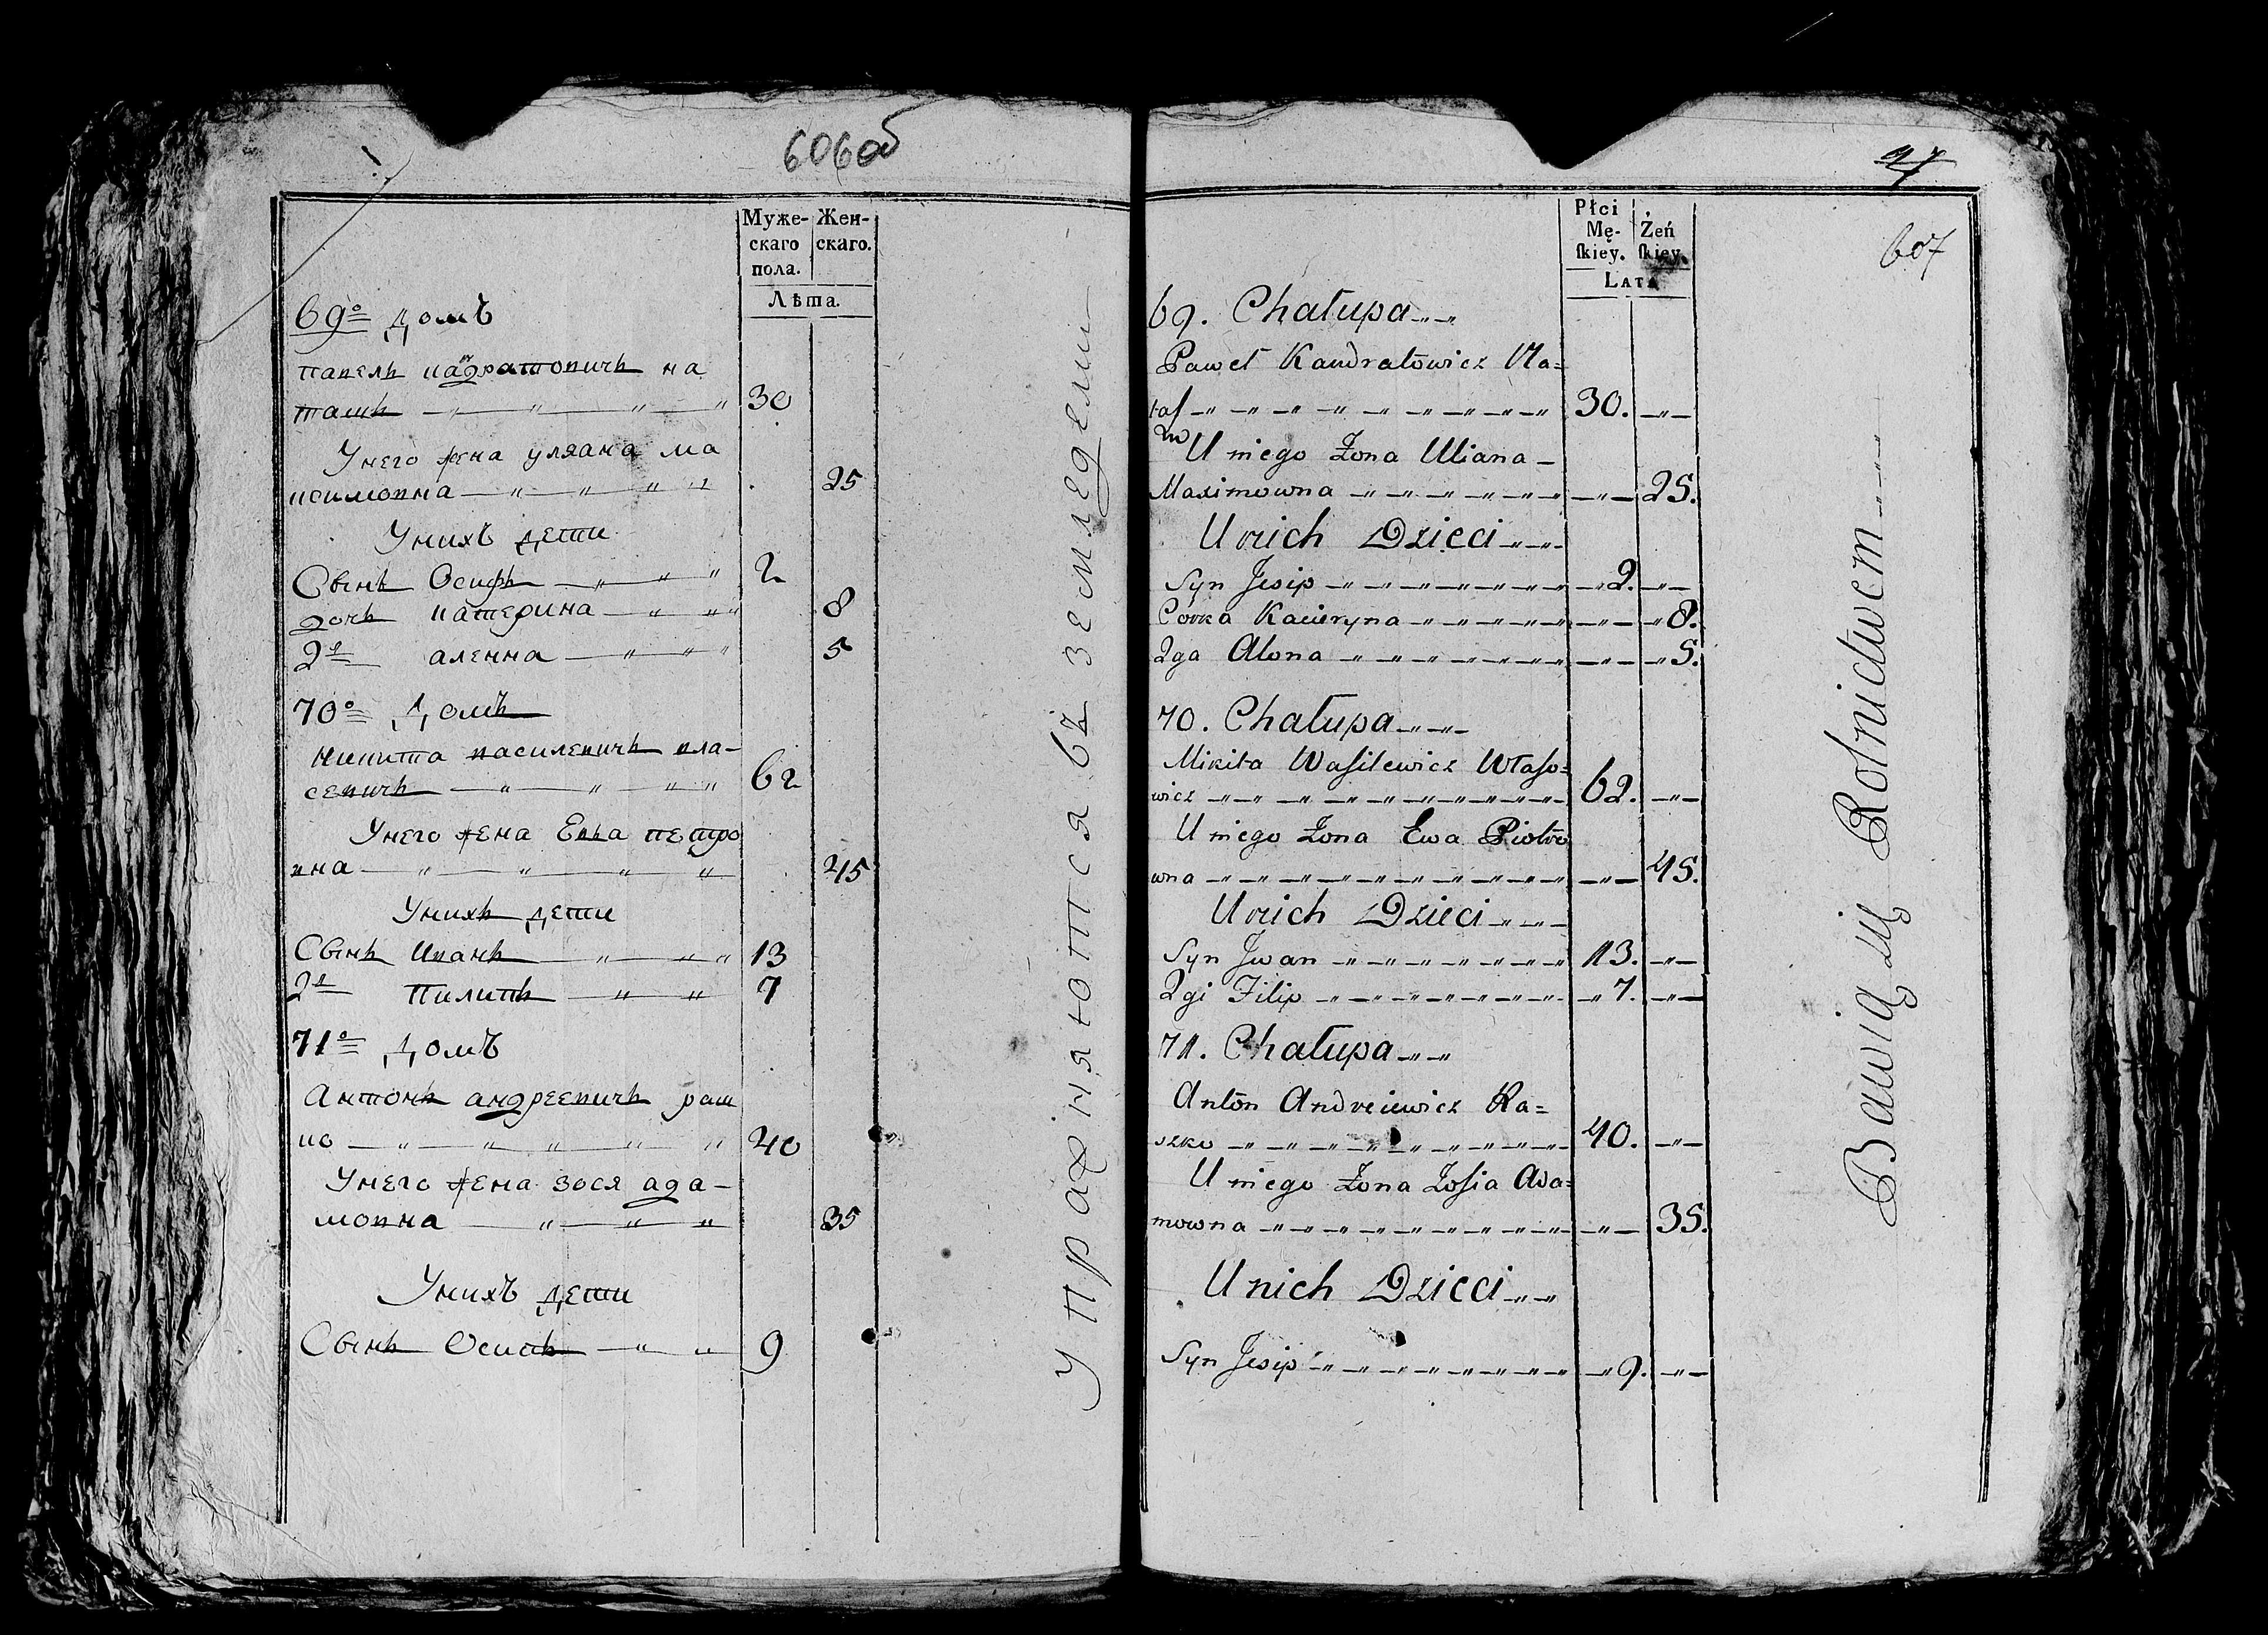 606об
Муже- Жен-
скаго скаго.
пола.
Лѣта.
69º домъ
павелъ кандратовичъ на
ташъ — " — " — " — " 30
Унего жена уляана ма
ксимовна — " — " — " — " 25
Унихъ дети
Сынъ Осифъ — " — " — " 2
дочь катерина — " — " " 8
2я аленна — " — " — " 5
70º домъ
микита василевичъ вла-
севичъ — " — " — " — " 62
Унего жена Евва петро
вна — " — " — " — " 45
Унихъ дети
Сынъ Иванъ — " — " — " 13
2й Пилипъ — " — " 7
71º домъ
Антонъ андреевичъ раш
ко — " — " — " — " — " 40
Унего жена зося ада-
мовна — " — " — " 35
Унихъ дети
Сынъ Осипъ — " — " 9
упражняются въ земледелии
47
607
Płci Żeń
Mę- skiey.
skiey.
LATA
69. Chałupa
Paweł Kandratowicz Na=
taſ 30.
U niego Żona Uliana
Maximowna 25.
U nich Dzieci
Syn Jesip 2.
Córka Kacieryna 8.
2ga Alona 5.
70. Chałupa
Mikita Waſilewicz Właſo=
wicz 62.
U niego Żona Ewa Piotro
wna 45.
U nich Dzieci
Syn Jwan 13.
2gi Filip 7.
71. Chałupa
Anton Andreiewicz Ra=
szko 40.
U niego Żona Zoſia Ada=
mowna 35.
U nich Dzieci
Syn Jesip 9.
Bawią się Rolnictwem